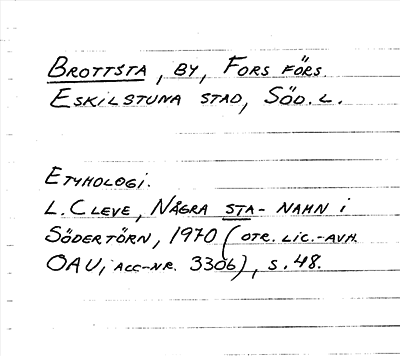 BROTTSTA, BY, FORS FÖRS.
ESKILSTUNA STAD, SÖD. L.
ETYMOLOGI.
L. CLEVE, NÅGRA STA-NAMN i
SÖDERTÖRN, 1970 (OTR. LIC.-AVH.
OAU, ACC-NR. 3306), S. 48.